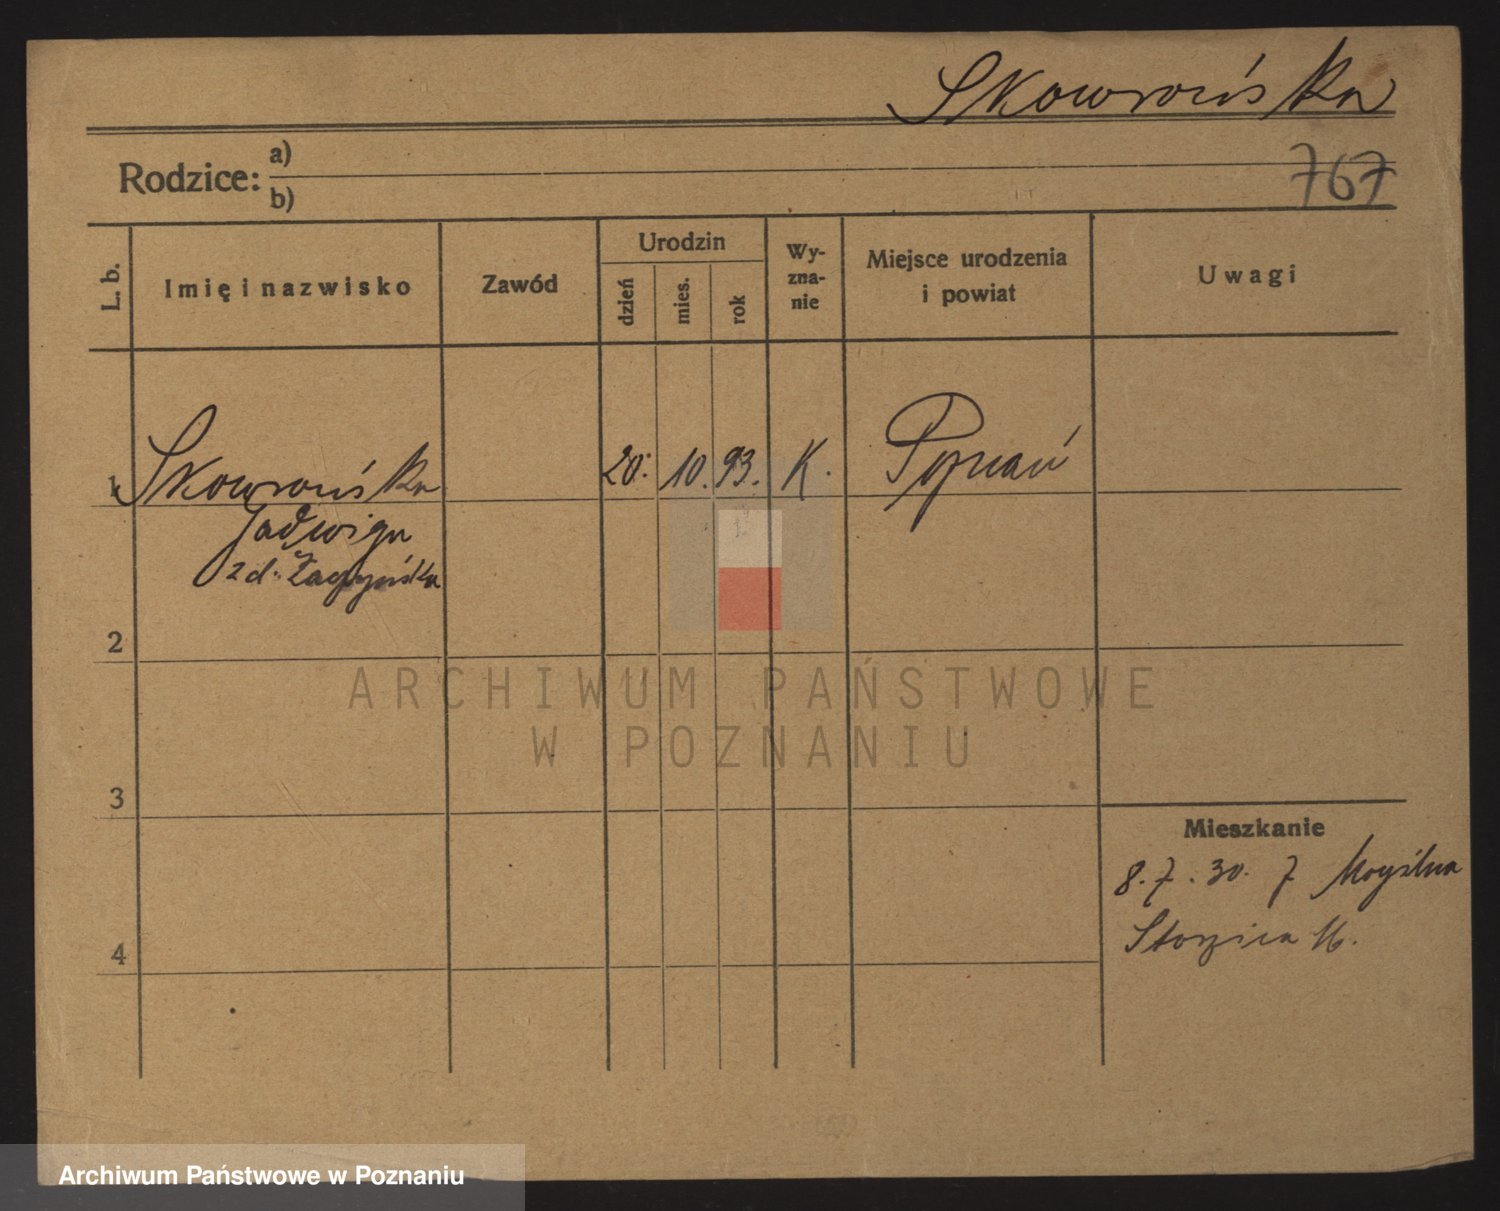 Skowrońska
Rodzice: a)
b)
767
L. b.
Imię i nazwisko
Zawód
Urodzin
dzień
mies.
rok
Wy-
zna-
nie
Miejsce urodzenia
i powiat
Uwagi
1 Skowrońska 20. 10. 93. K. Poznań
Jadwiga
z d.
2
3
4
Mieszkanie
8. 7. 30. z
16.
ARCHIWUM PAŃSTWOWE
W POZNANIU
Archiwum Państwowe w Poznaniu